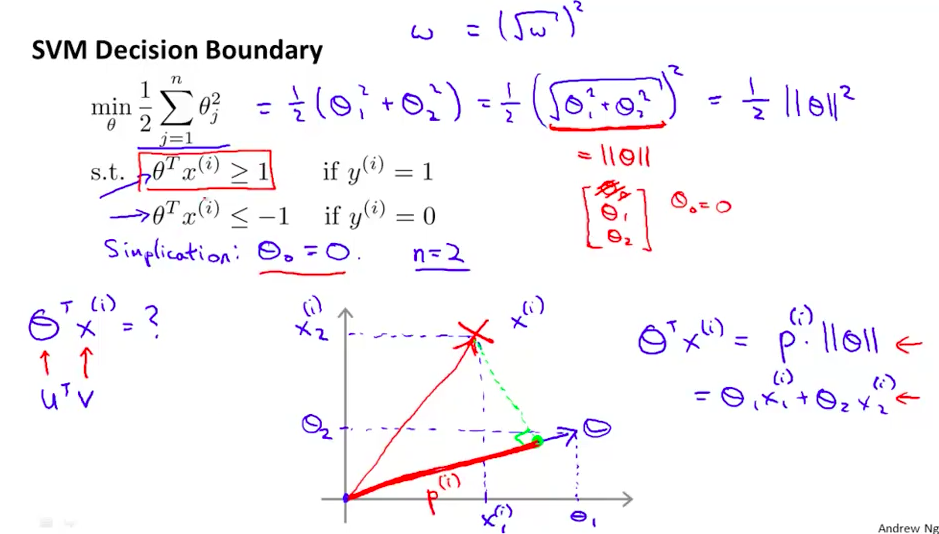 ω = (√ω)²
SVM Decision Boundary
min_θ 1/2 Σ_{j=1}^{n} θ_j² = 1/2 (θ₁² + θ₂²) = 1/2 (√(θ₁² + θ₂²))² = 1/2 ||θ||²
= ||θ||
s.t. θᵀx⁽ⁱ⁾ ≥ 1 if y⁽ⁱ⁾ = 1
θᵀx⁽ⁱ⁾ ≤ −1 if y⁽ⁱ⁾ = 0
[θ₀ θ₁ θ₂] θ₀ = 0
Simplication: θ₀ = 0. n=2
θᵀx⁽ⁱ⁾ = ?
uᵀv
x₂⁽ⁱ⁾
x⁽ⁱ⁾
θ₂
θ
p⁽ⁱ⁾
x₁⁽ⁱ⁾
θ₁
θᵀx⁽ⁱ⁾ = p⁽ⁱ⁾·||θ|| ←
= θ₁x₁⁽ⁱ⁾ + θ₂x₂⁽ⁱ⁾ ←
Andrew Ng